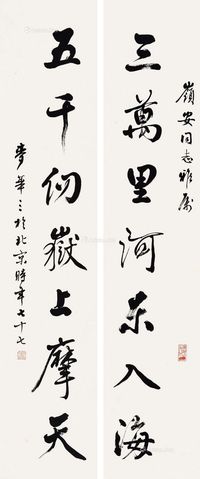 嶺安同志雅属
三萬里河东入海
五千仞嶽上摩天
麥華三於北京時年七十七